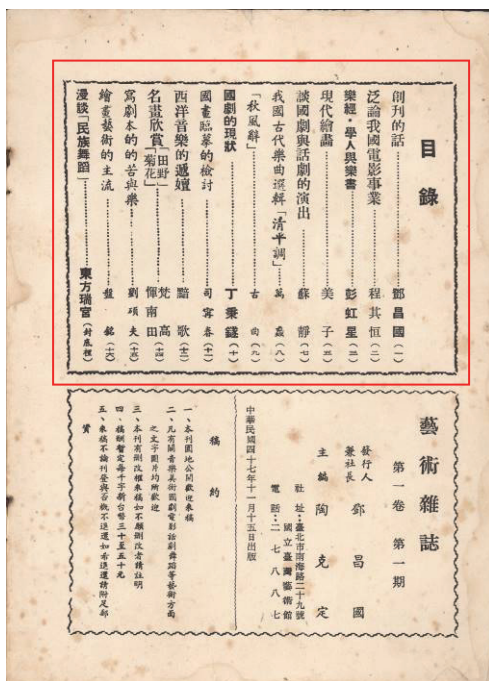 目錄
創刊的話………鄧昌國（一）
泛論我國電影事業………程其恒（二）
樂經・學人與樂書………彭虹星（三）
現代繪畫………美子（三）
談國劇與話劇的演出………蘇靜（七）
我國古代樂曲選輯「清平調」………萬 （八）
「秋風辭」………古 （九）
國劇的現狀………丁秉鐩（十）
國畫臨摹的檢討………司寇春（十一）
西洋音樂的遞嬗………黯歌（十三）
名畫欣賞「田野」………梵高
「菊花」………惲南田（十四）
寫劇本的的苦與樂………劉碩夫（十五）
繪畫藝術的主流………盤銘（十六）
漫談「民族舞蹈」………東方瑞宮（封底裡）
藝術雜誌
第一卷 第一期
發行人
兼社長 鄧昌國
主編 陶克定
社址：臺北市南海路二十九號
國立臺灣藝術館
電話：二七八八七
中華民國四十七年十一月十五日出版
稿約
一、本刊園地公開歡迎來稿
二、凡有關音樂美術國劇電影話劇舞蹈等藝術方面
之文字圖片均所歡迎
三、本刊有刪改權來稿如不願刪改者請註明
四、稿酬暫定每千字新台幣三十至五十元
五、來稿不論刊登與否概不退還如希退還請附足郵
資